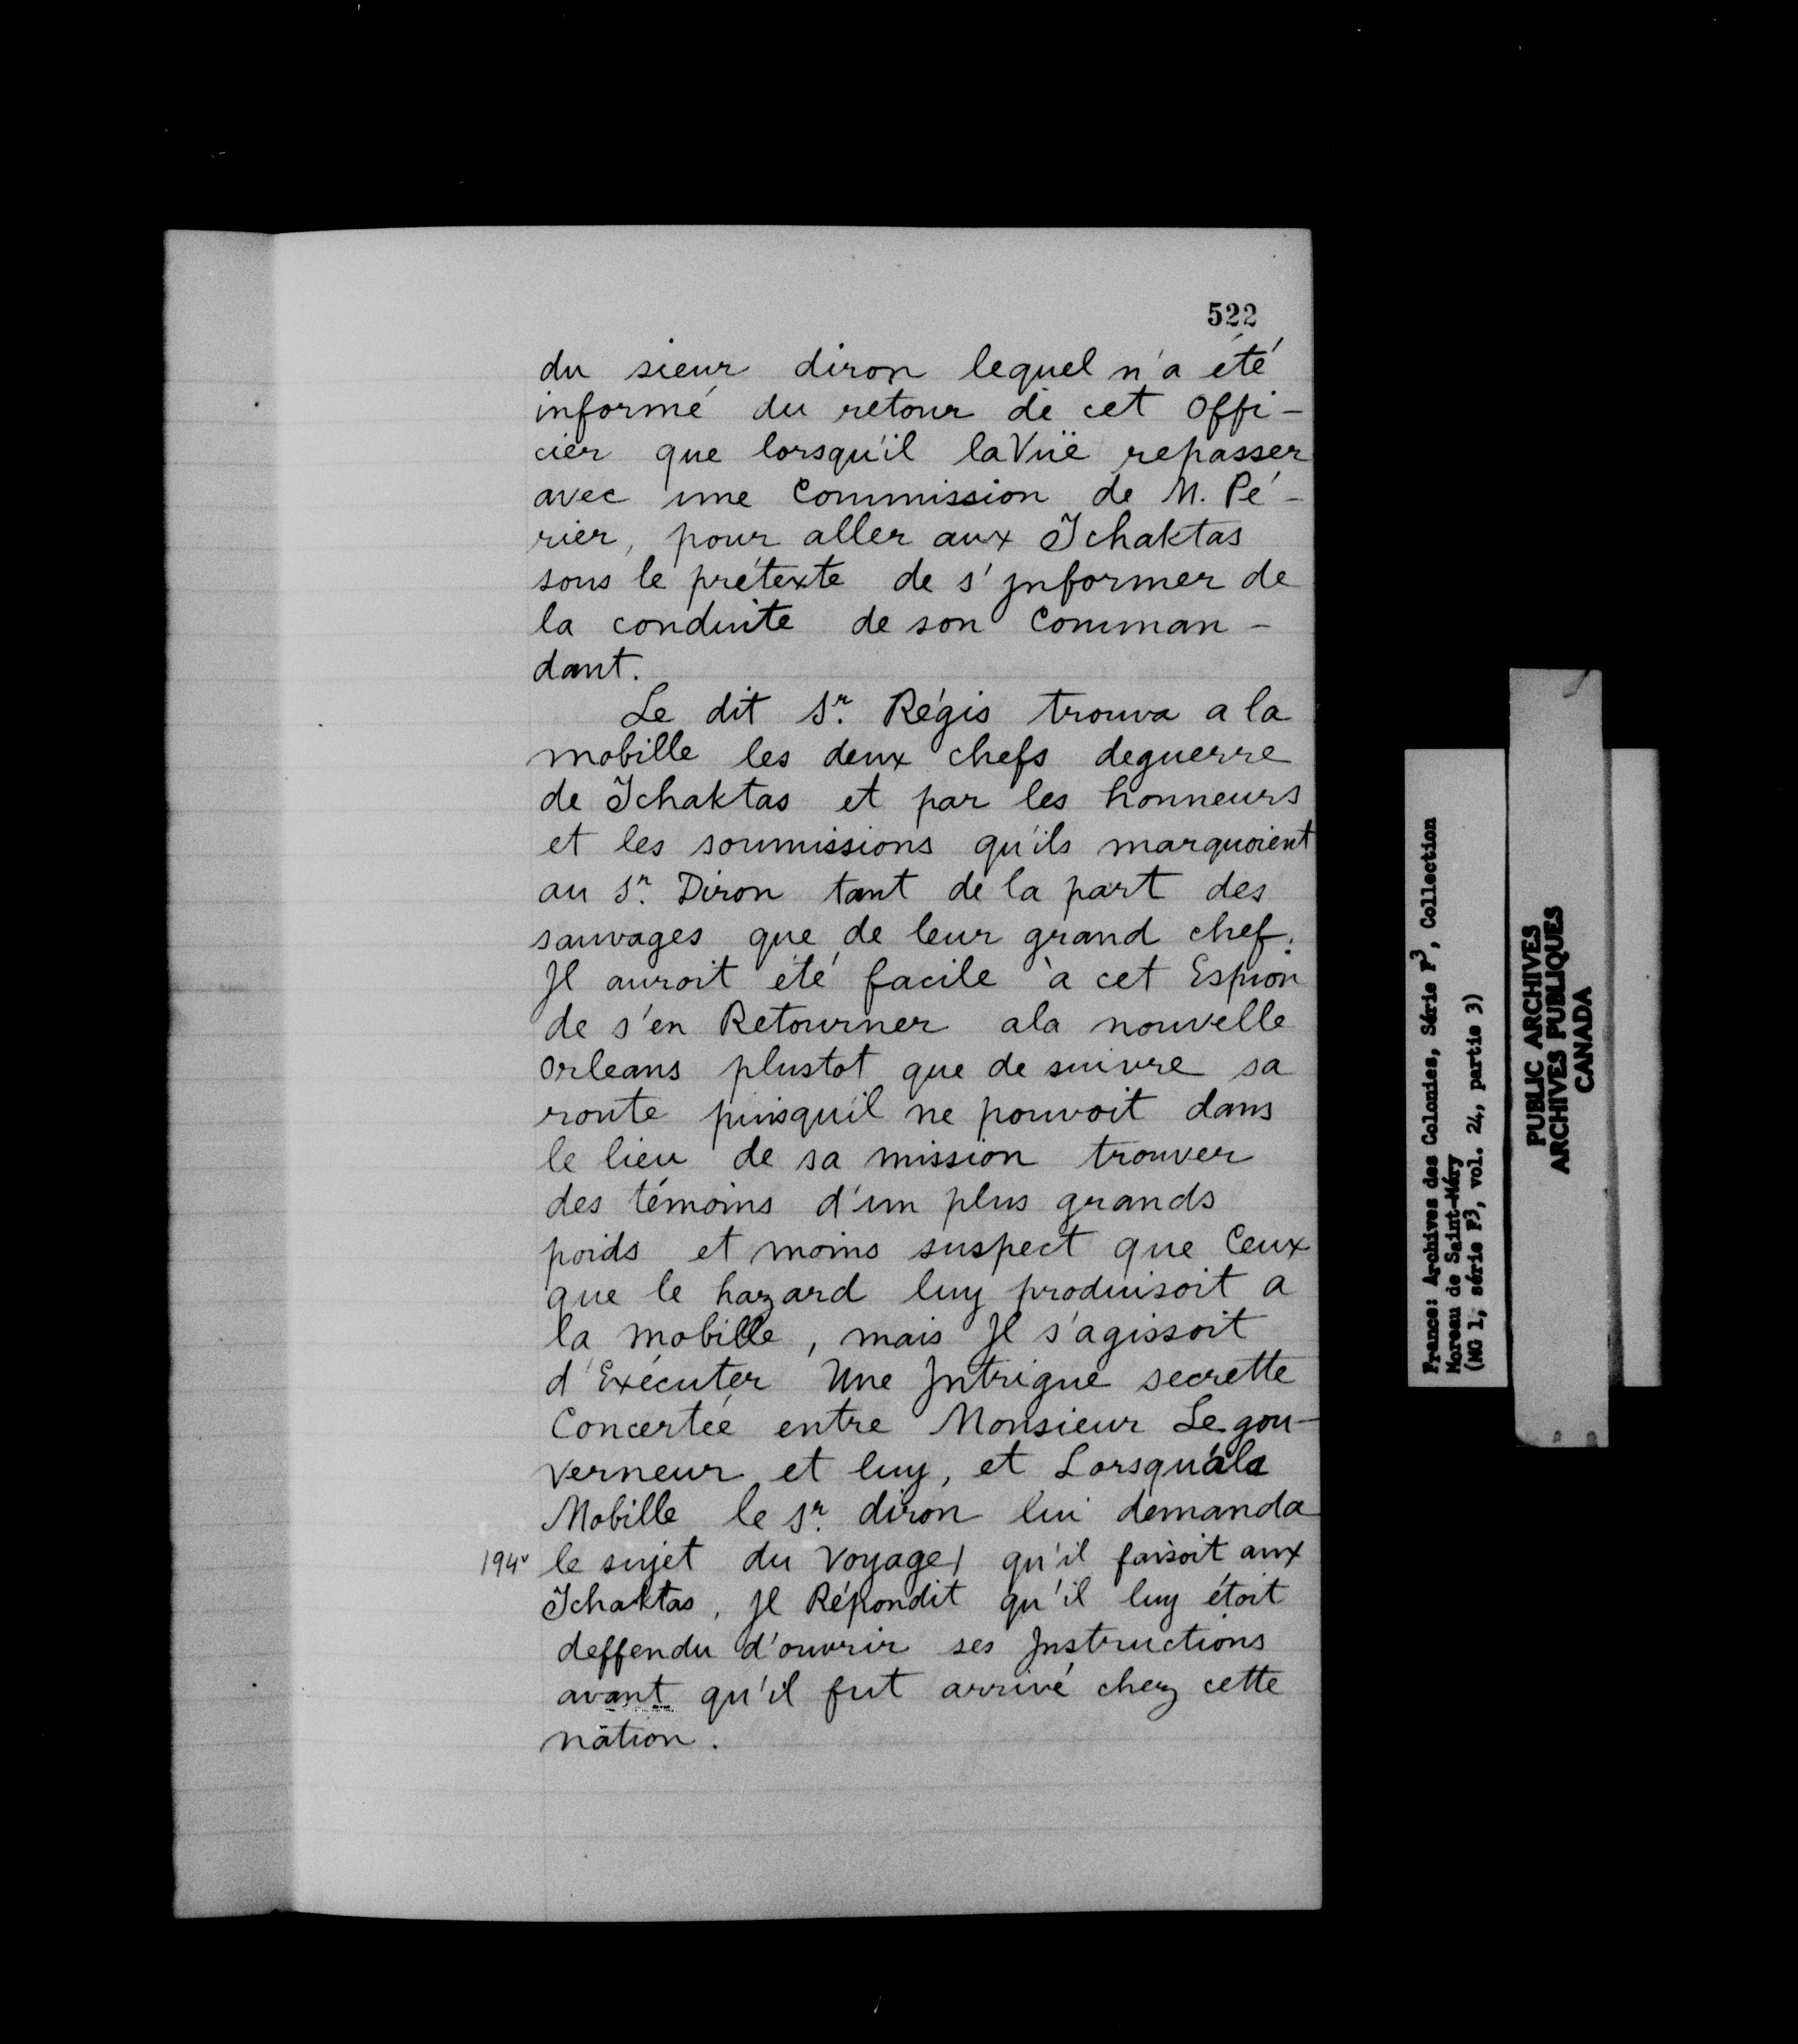 522
du sieur diron lequel n'a été
informé du retour de cet offi-
cier que lorsqu'il la Vuë repasser
avec une Commission de M. Pé-
rier, pour aller aux Tchaktas
sous le prétexte de s'Jnformer de
la conduite de son Comman-
dant.
Le dit Sr. Régis trouva a la
mobille les deux chefs deguerre
de Tchaktas et par les honneurs
et les soumissions qu'ils marquoient
au Sr. Diron tant de la part des
sauvages que de leur grand chef.
Jl auroit été facile à cet Espion
de s'en Retourner ala nouvelle
orleans plustot que de suivre sa
route puisqu'il ne pouvoit dans
le lieu de sa mission trouver
des témoins d'un plus grands
poids et moins suspect que Ceux
que le hazard luy produisoit a
la mobille, mais Jl s'agissoit
d'Exécuter Une Jntrigue secrette
Concertée entre Monsieur Le gou-
verneur et luy, et Lorsqu'àla
Mobille le Sr. diron lui demanda
194v le sujet du Voyage/ qu'il faisoit aux
Tchaktas, Jl Répondit qu'il luy étoit
deffendu d'ouvrir ses Jnstructions
avant qu'il fut arrivé chez cette
nation.
France: Archives des Colonies, Série F3, Collection
Moreau de Saint-Méry
(MG 1, série F3, vol. 24, partie 3)
PUBLIC ARCHIVES
ARCHIVES PUBLIQUES
CANADA